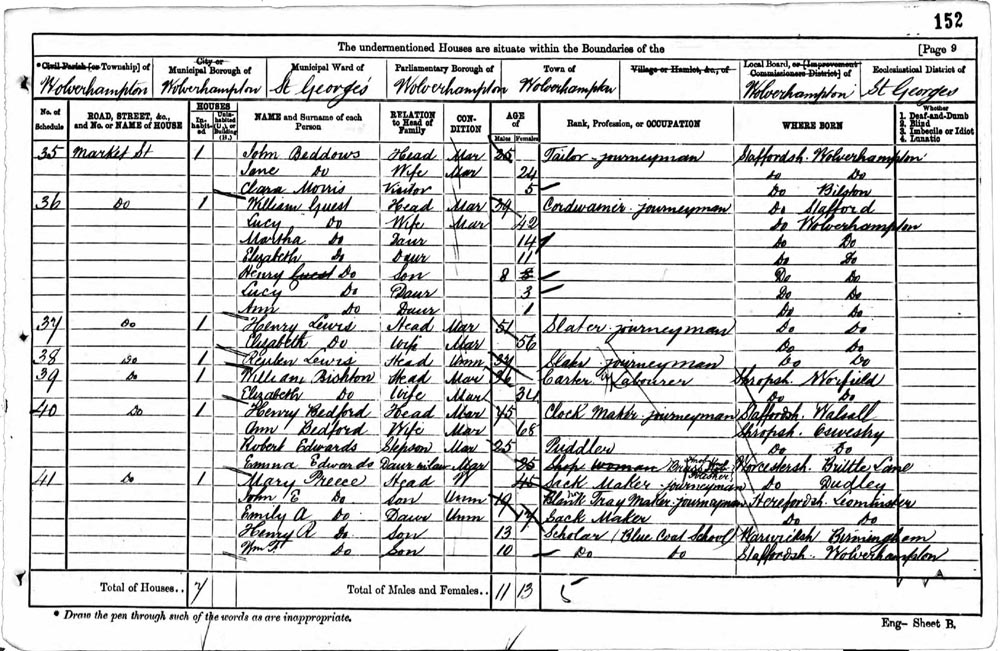 152
The undermentioned Houses are situate within the Boundaries of the [Page 9
*Civil Parish [or Township] of City or Municipal Borough of Municipal Ward of Parliamentary Borough of Town of Village or Hamlet, &c., of Local Board, or [Improvement Commissioners District] of Ecclesiastical District of
Wolverhampton Wolverhampton St Georges Wolverhampton Wolverhampton Wolverhampton St Georges
No. of Schedule ROAD, STREET, &c., and No. or NAME of HOUSE HOUSES Inhabited Uninhabited (U.), or Building (B.) NAME and Surname of each Person RELATION to Head of Family CONDITION AGE of Males Females Rank, Profession, or OCCUPATION WHERE BORN Whether 1. Deaf-and-Dumb 2. Blind 3. Imbecile or Idiot 4. Lunatic
35 Market St 1 John Beddows Head Mar 25 Tailor journeyman Staffordsh. Wolverhampton
Jane Do Wife Mar 24 Do Do
Clara Morris Visitor 5 Do Bilston
36 Do 1 William Guest Head Mar 39 Cordwainer journeyman Do Stafford
Lucy Do Wife Mar 42 Do Wolverhampton
Martha Do Daur 14 Do Do
Elizabeth Do Daur 11 Do Do
Henry Guest Do Son 8 Do Do
Lucy Do Daur 3 Do Do
Ann Do Daur 1 Do Do
37 Do 1 Henry Lewis Head Mar 51 Slater journeyman Do Do
Elisabeth Do Wife Mar 56 Do Do
38 Do 1 Reuben Lewis Head Unm 37 journeyman Do Do
39 Do 1 William Brishton Head Mar 36 Carter Labourer Shropsh. Worfield
Elizabeth Do Wife Mar 34 Do Do
40 Do 1 Henry Bedford Head Mar 45 Clock Maker journeyman Staffordsh. Walsall
Ann Bedford Wife Mar 68 Shropsh. Oswestry
Robert Edwards Stepson Mar 25 Puddler Do Do
Emma Edwards Daur in law Mar 25 Shop woman Worcestersh. Brittle Lane
41 Do 1 Mary Preece Head W 45 Sack Maker journeyman Do Dudley
John E Do Son Unm 19 Blank Tray Maker journeyman Herefordsh. Leominster
Emily A Do Daur Unm 17 Sack Maker Do Do
Henry R Do Son 13 Scholar (Blue Coat School) Warwicksh Birmingham
Wm F. Do Son 10 Do Do Staffordsh. Wolverhampton
Total of Houses.. 7 Total of Males and Females.. 11 13 5
* Draw the pen through such of the words as are inappropriate.
Eng- Sheet B.